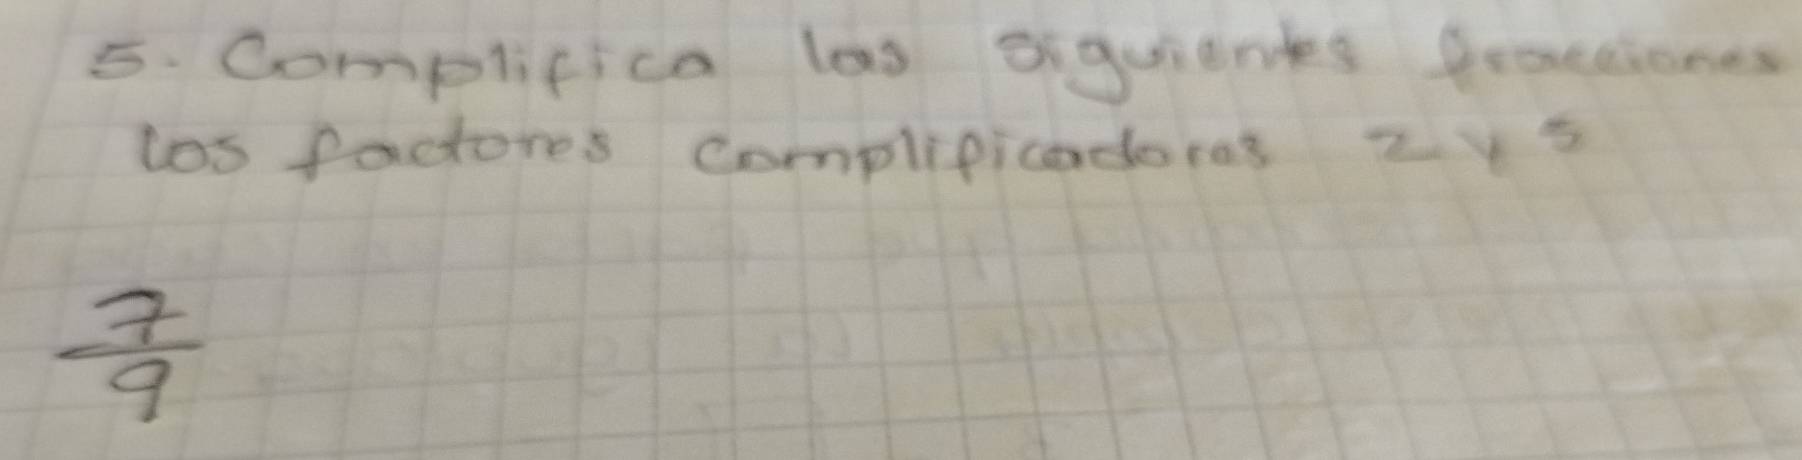 5. Complifica las siguientes fracciones
los factores complificadores 2 y 5
7
9